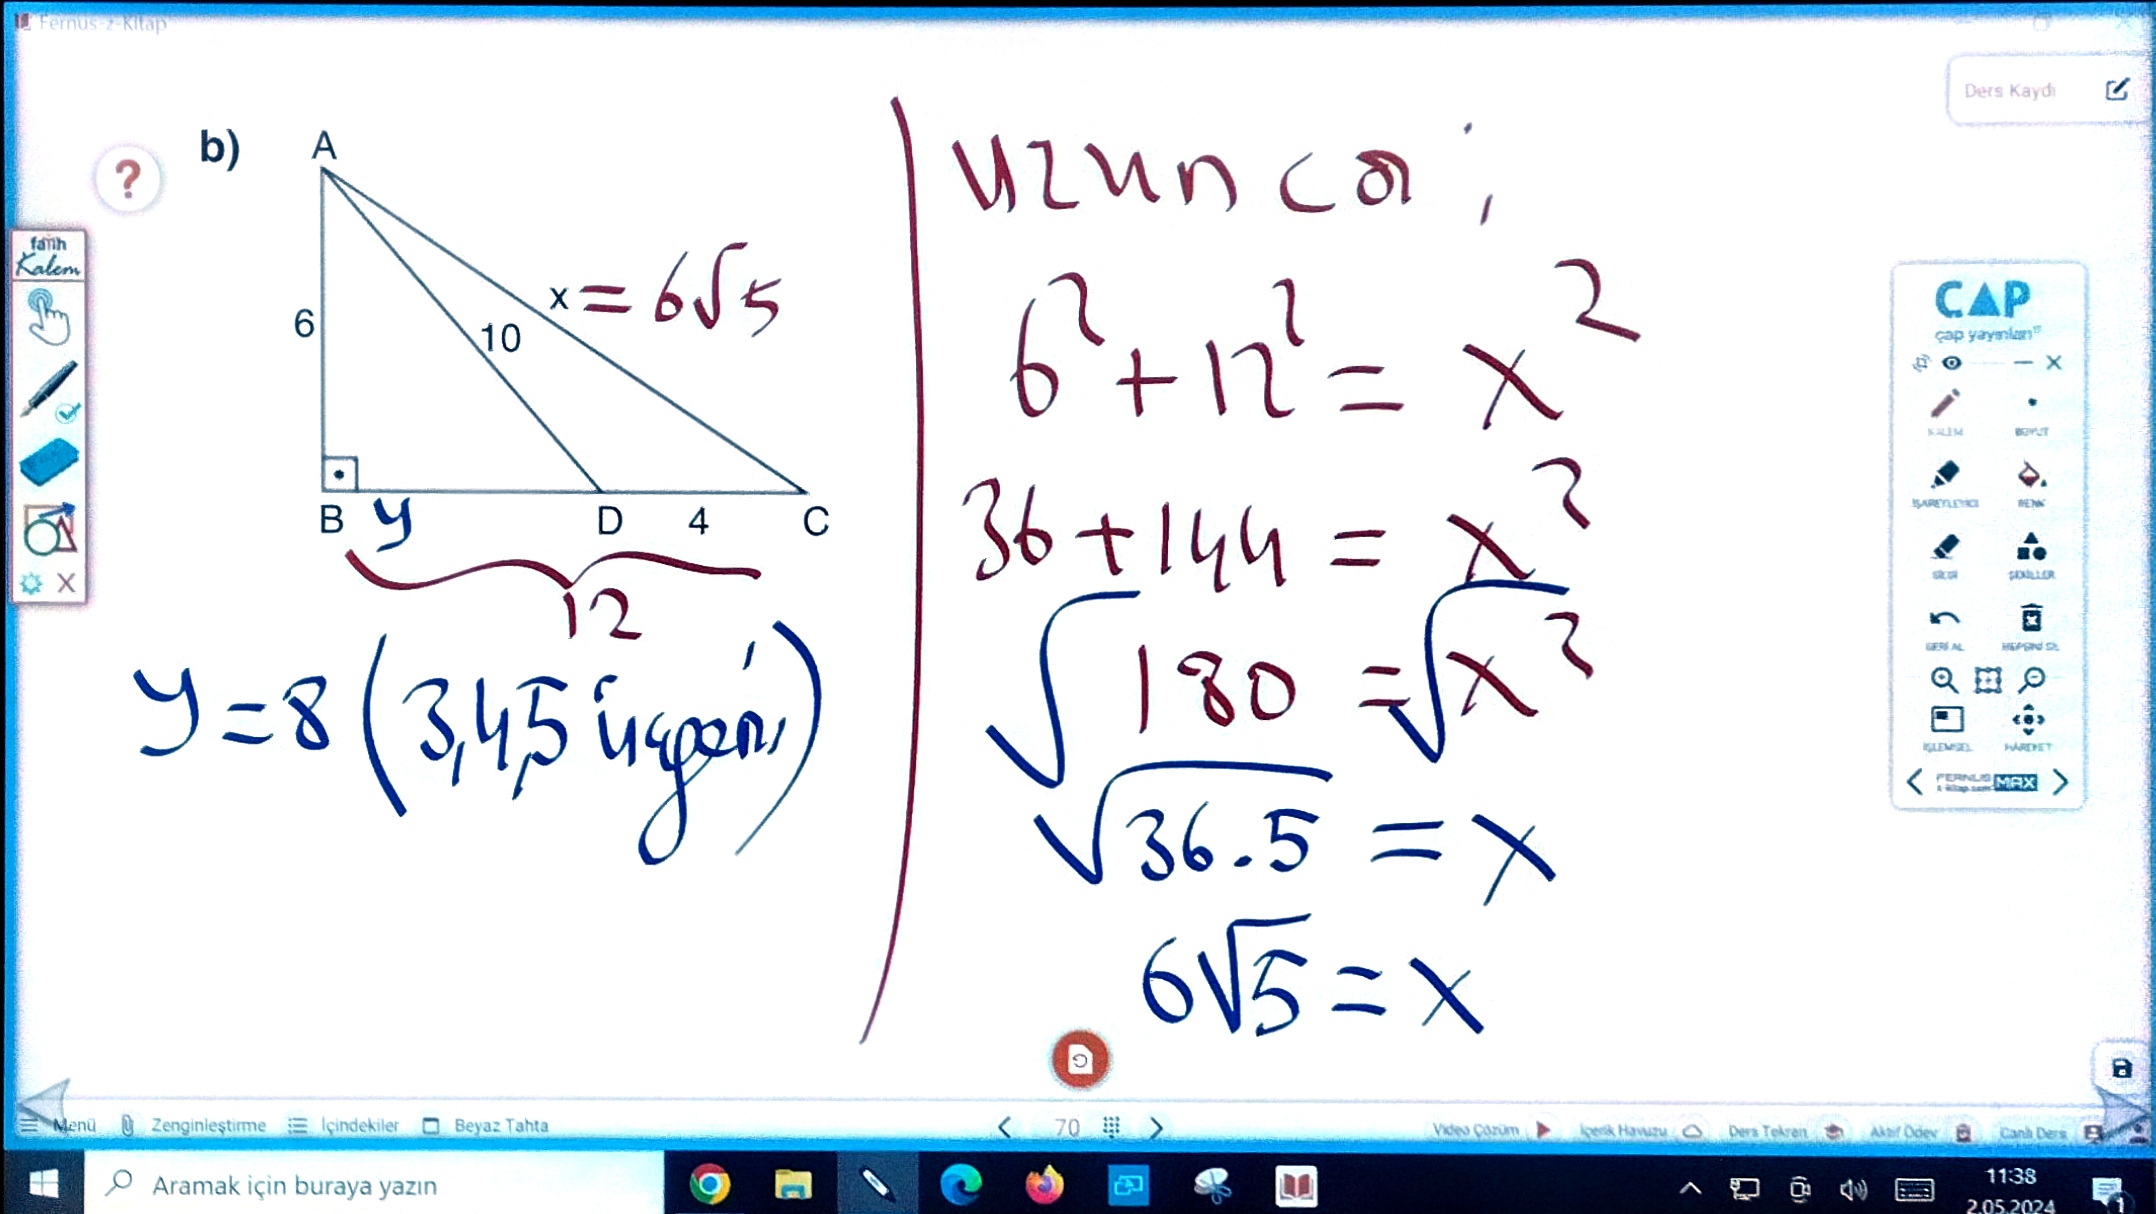 Fernus-z-Kitap
Ders Kaydı
b)
A
x = 6√5
6
10
B y D 4 C
12
y = 8 (3,4,5 üçgeni)
uzun cö;
6² + 12² = x²
36 + 144 = x²
√180 = √x²
√36.5 = x
6√5 = x
?
fatih
Kalem
ÇAP
çap yayınları
KALEM BOYUT
İŞARETLEYİCİ RENK
SİLGİ ŞEKİLLER
GERİ AL HEPSİNİ SİL
İŞLEMSEL HAREKET
FERNUS MAX
Menü Zenginleştirme İçindekiler Beyaz Tahta
70
Video Çözüm İçerik Havuzu Ders Tekrarı Aktif Ödev Canlı Ders
Aramak için buraya yazın
11:38
2.05.2024
1